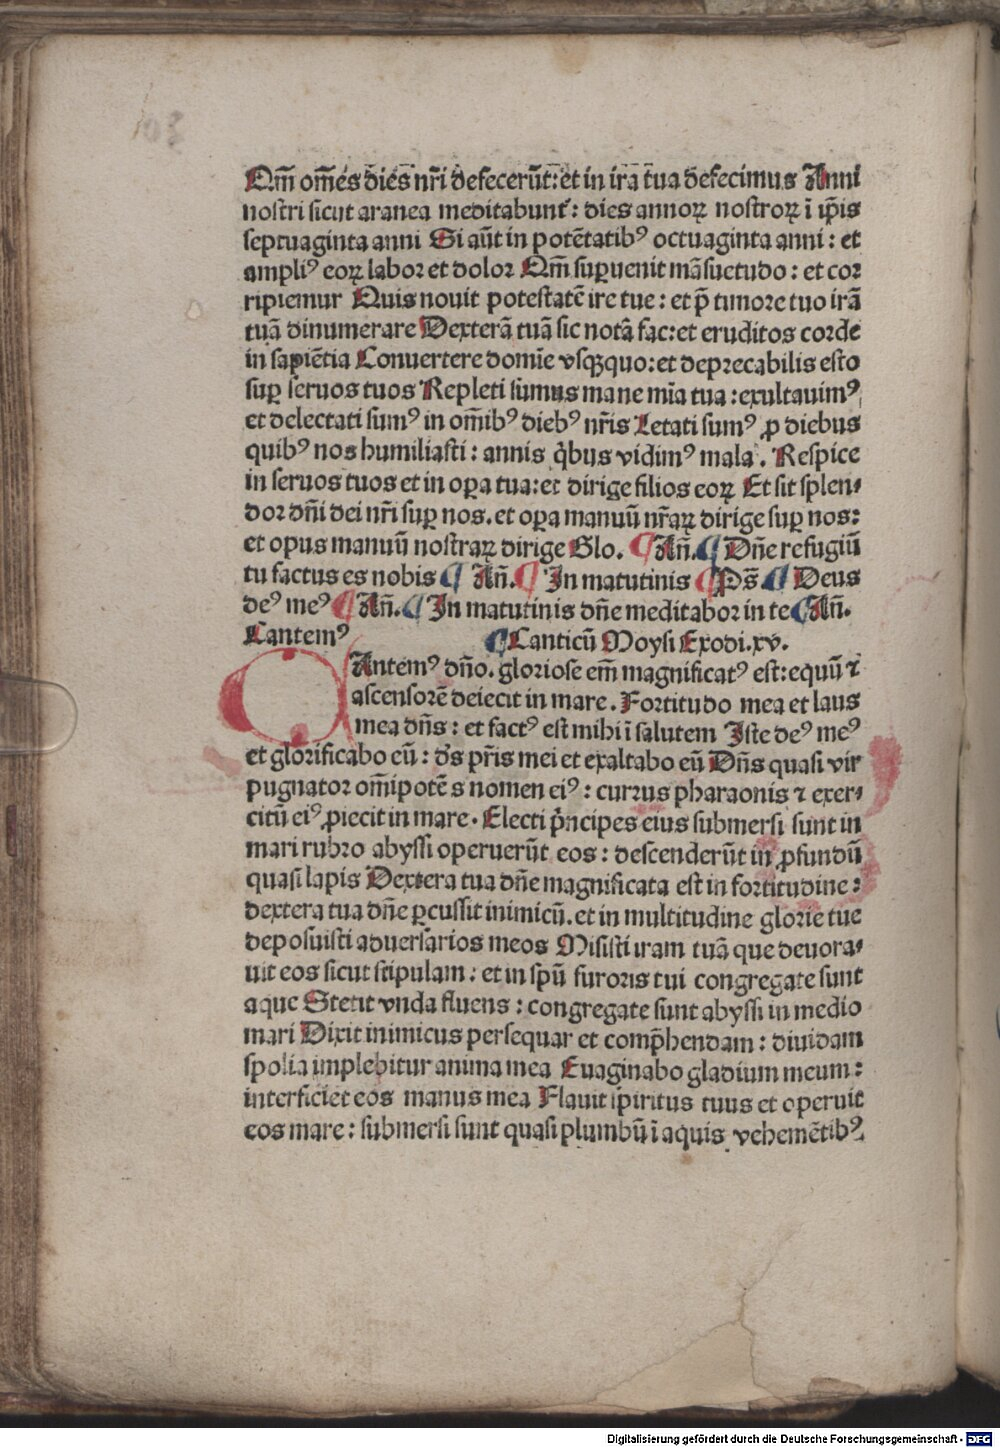 Qm̄ om̄es dies nr̄i defecerūt: et in ira tua defecimus Anni
nostri sicut aranea meditabunt᷑: dies annoꝝ nostroꝝ ī ip̄is
septuaginta anni Si aūt in potētatibꝰ octuaginta anni: et
ampliꝰ eoꝝ labor et dolor Qm̄ suꝑuenit māsuetudo: et cor
ripiemur Quis nouit potestatē ire tue: et p̄ timore tuo irā
tuā dinumerare Dexterā tuā sic notā fac: et eruditos corde
in sapiētia Conuertere domīe vsqꝫquo: et deprecabilis esto
suꝑ seruos tuos Repleti sumus mane mīa tua: exultauimꝰ
et delectati sumꝰ in om̄ibꝰ diebꝰ nr̄is Letati sumꝰ ꝓ diebus
quibꝰ nos humiliasti: annis q̄bus vidimꝰ mala. Respice
in seruos tuos et in oꝑa tua: et dirige filios eoꝝ Et sit splen⸗
dor dn̄i dei nr̄i suꝑ nos. et oꝑa manuū nr̄aꝝ dirige suꝑ nos:
et opus manuū nostraꝝ dirige Glo. ¶ An̄. ¶ Dn̄e refugiū
tu factus es nobis ¶ An̄. ¶ In matutinis ¶ Ps̄ ¶ Deus
deꝰ meꝰ ¶ An̄. ¶ In matutinis dn̄e meditabor in te ¶ An̄.
Cantemꝰ ¶ Canticū Moysi Exodi. xv.
CAntemꝰ dn̄o. gloriose em̄ magnificatꝰ est: equū ⁊
ascensorē deiecit in mare. Fortitudo mea et laus
mea dn̄s: et factꝰ est mihi ī salutem Iste deꝰ meꝰ
et glorificabo eū: ds̄ pr̄is mei et exaltabo eū Dn̄s quasi vir
pugnator om̄ipotēs nomen eiꝰ: currus pharaonis ⁊ exer⸗
citū eiꝰ ꝓiecit in mare. Electi p̄ncipes eius submersi sunt in
mari rubro abyssi operuerūt eos: descenderūt in ꝓfundū
quasi lapis Dextera tua dn̄e magnificata est in fortitudine:
dextera tua dn̄e ꝑcussit inimicū. et in multitudine glorie tue
deposuisti aduersarios meos Misisti iram tuā que deuora⸗
uit eos sicut stipulam: et in spū furoris tui congregate sunt
aque Stetit vnda fluens: congregate sunt abyssi in medio
mari Dixit inimicus persequar et comp̄hendam: diuidam
spolia implebitur anima mea Euaginabo gladium meum:
interficiet eos manus mea Flauit spiritus tuus et operuit
eos mare: submersi sunt quasi plumbū ī aquis vehemētibꝰ
Digitalisierung gefördert durch die Deutsche Forschungsgemeinschaft - DFG